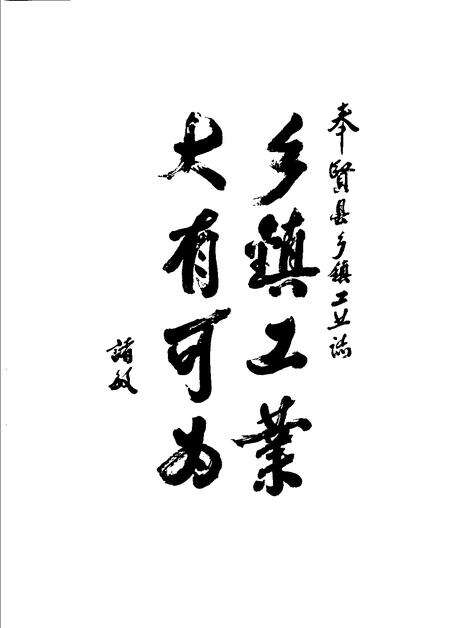 奉贤县乡镇工业志
乡鎮工業
大有可为
諸敏